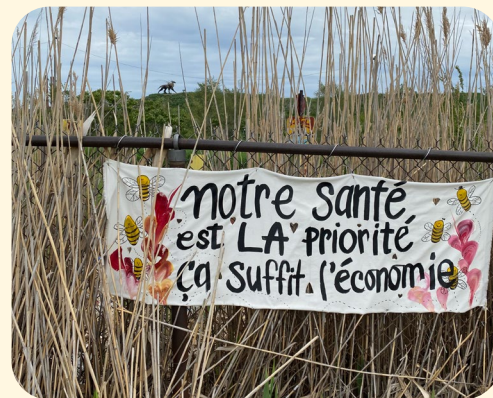 notre santé
est LA priorité
ça suffit l'économie